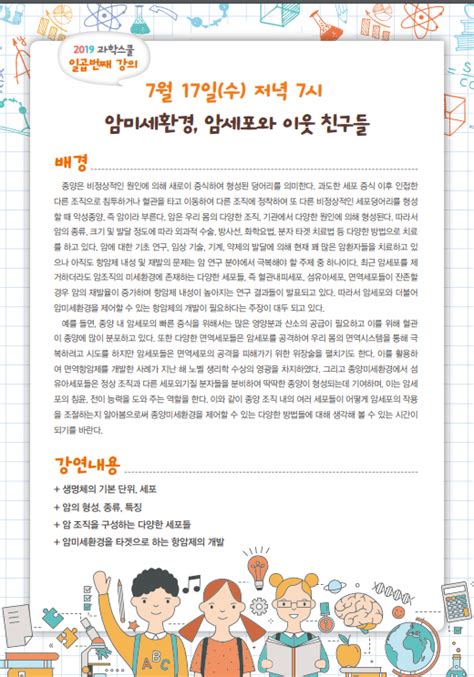 2019 과학스쿨
일곱번째 강의
7월 17일(수) 저녁 7시
암미세환경, 암세포와 이웃 친구들
배경
종양은 비정상적인 원인에 의해 새로이 증식하여 형성된 덩어리를 의미한다. 과도한 세포 증식 이후 인접한
다른 조직으로 침투하거나 혈관을 타고 이동하여 다른 조직에 정착하여 또 다른 비정상적인 세포덩어리를 형성
할 때 악성종양, 즉 암이라 부른다. 암은 우리 몸의 다양한 조직, 기관에서 다양한 원인에 의해 형성된다. 따라서
암의 종류, 크기 및 발달 정도에 따라 외과적 수술, 방사선, 화학요법, 분자 타겟 치료법 등 다양한 방법으로 치료
를 하고 있다. 암에 대한 기초 연구, 임상 기술, 기계, 약제의 발달에 의해 현재 꽤 많은 암환자들을 치료하고 있
으나 아직도 항암제 내성 및 재발의 문제는 암 연구 분야에서 극복해야 할 주제 중 하나이다. 최근 암세포를 제
거하더라도 암조직의 미세환경에 존재하는 다양한 세포들, 즉 혈관내피세포, 섬유아세포, 면역세포들이 잔존할
경우 암의 재발율이 증가하며 항암제 내성이 높아지는 연구 결과들이 발표되고 있다. 따라서 암세포와 더불어
암미세환경을 제어할 수 있는 항암제의 개발이 필요하다는 주장이 대두 되고 있다.
예를 들면, 종양 내 암세포의 빠른 증식을 위해서는 많은 영양분과 산소의 공급이 필요하고 이를 위해 혈관
이 종양에 많이 분포하고 있다. 또한 다양한 면역세포들은 암세포를 공격하여 우리 몸의 면역시스템을 통해 극
복하려고 시도를 하지만 암세포들은 면역세포의 공격을 피해가기 위한 위장술을 펼치기도 한다. 이를 활용하
여 면역항암제를 개발한 사례가 지난 해 노벨 생리학 수상의 영광을 차지하였다. 그리고 종양미세환경에서 섬
유아세포들은 정상 조직과 다른 세포외기질 분자들을 분비하여 딱딱한 종양이 형성되는데 기여하며, 이는 암세
포의 침윤, 전이 능력을 도와 주는 역할을 한다. 이와 같이 종양 조직 내의 여러 세포들이 어떻게 암세포의 작용
을 조절하는지 알아봄으로써 종양미세환경을 제어할 수 있는 다양한 방법들에 대해 생각해 볼 수 있는 시간이
되기를 바란다.
강연내용
+ 생명체의 기본 단위, 세포
+ 암의 형성, 종류, 특징
+ 암 조직을 구성하는 다양한 세포들
+ 암미세환경을 타겟으로 하는 항암제의 개발
ABC